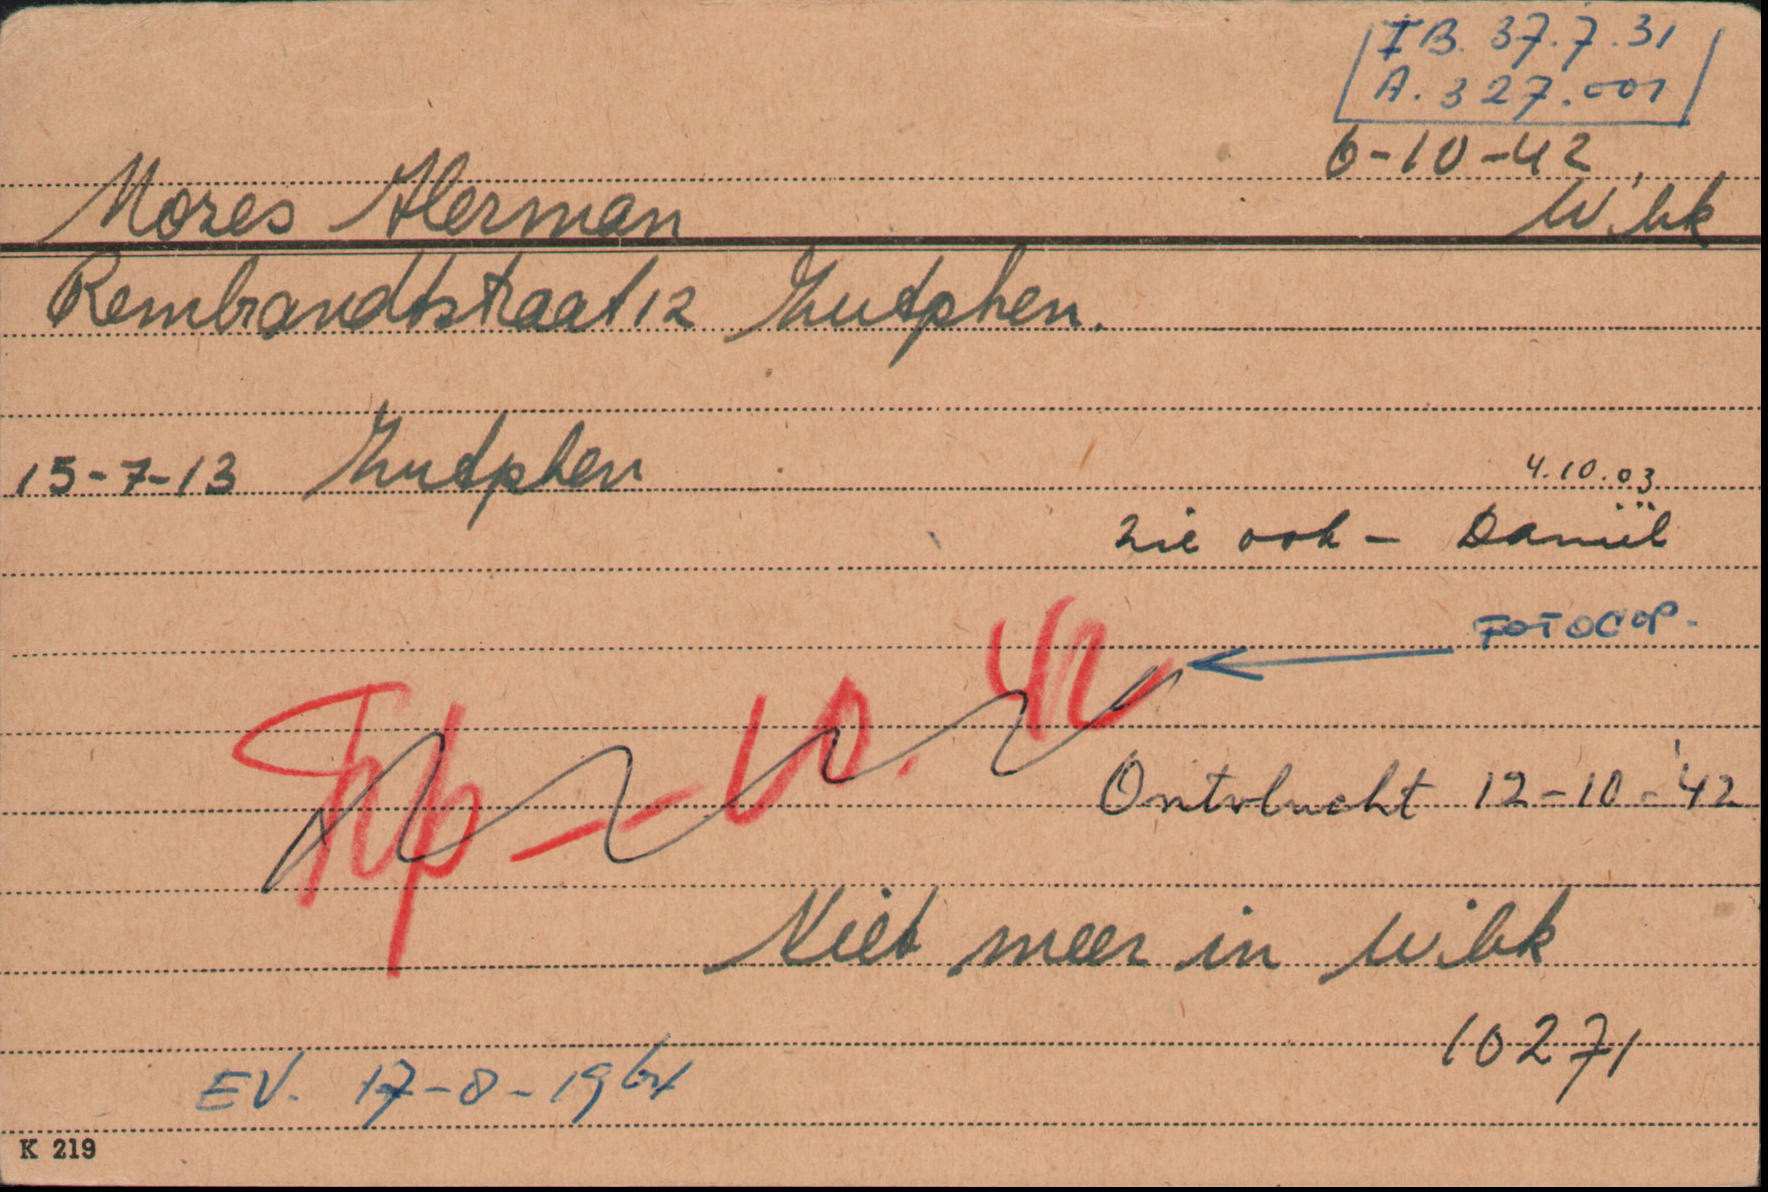 IB. 37.7.31
A. 327.001
6-10-42
Mozes Herman W.bk
Rembrandtstraat 12 Zutphen.
15-7-13 Zutphen
4.10.03
zie ook - Daniël
FOTOCOP.
10.42
Ontvlucht 12-10-'42
Niet meer in W.bk
10271
EV. 17-8-1964
K 219